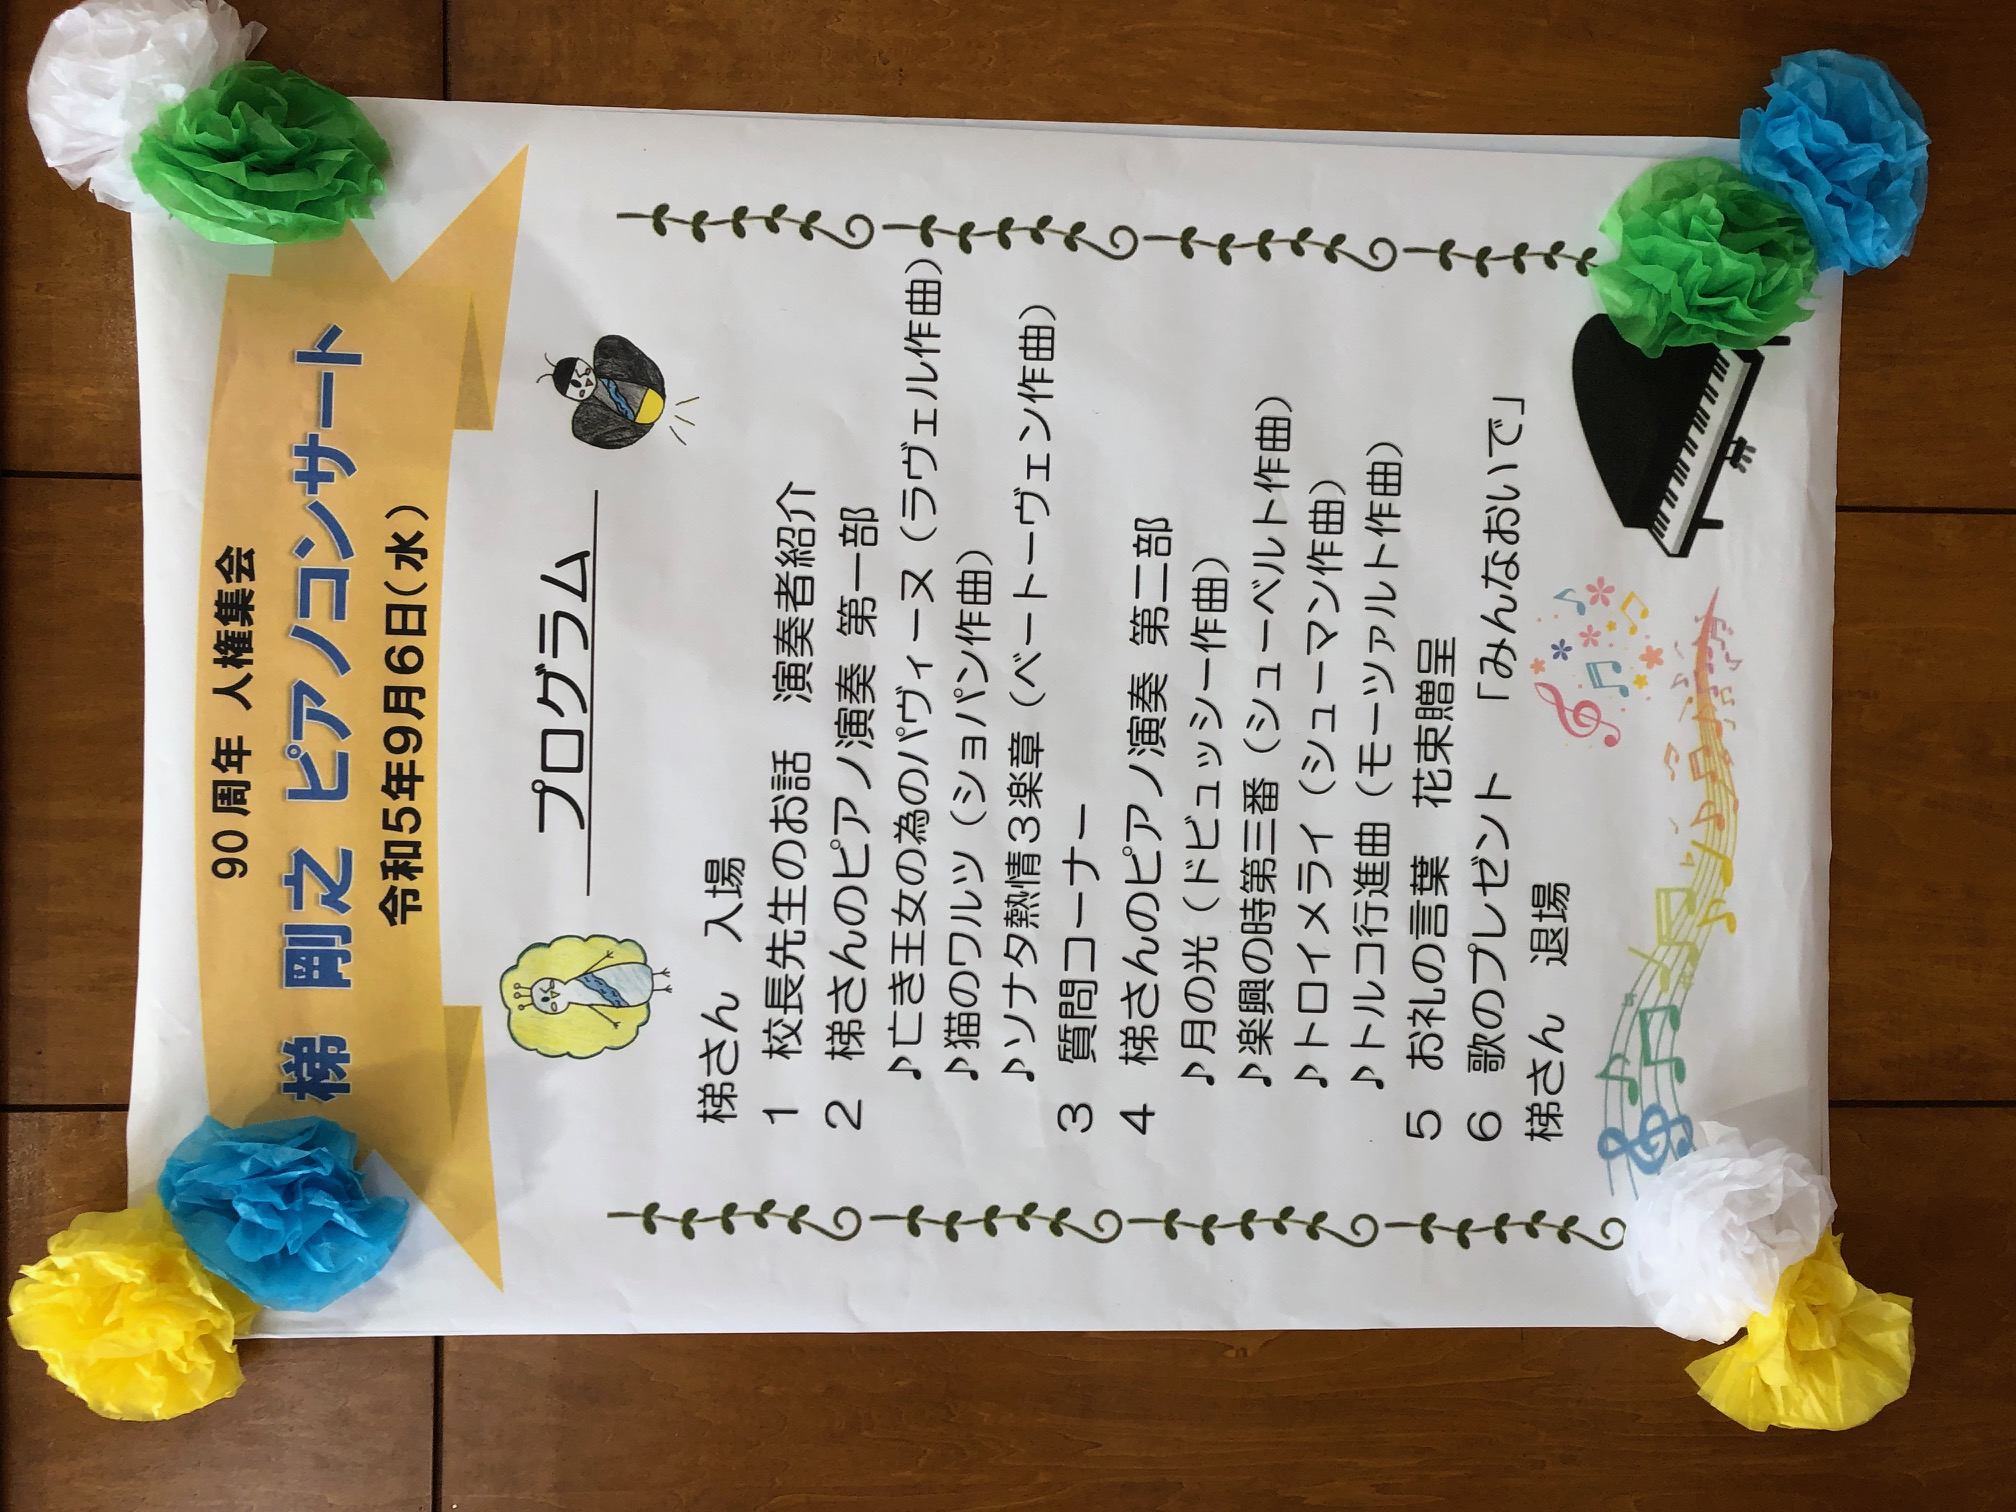 90周年 人権集会
梯 剛之 ピアノコンサート
令和5年9月6日(水)
プログラム
梯さん 入場
1 校長先生のお話 演奏者紹介
2 梯さんのピアノ演奏 第一部
♪亡き王女の為のパヴィーヌ(ラヴェル作曲)
♪猫のワルツ(ショパン作曲)
♪ソナタ熱情3楽章(ベートーヴェン作曲)
3 質問コーナー
4 梯さんのピアノ演奏 第二部
♪月の光(ドビュッシー作曲)
♪楽興の時第三番(シューベルト作曲)
♪トロイメライ(シューマン作曲)
♪トルコ行進曲(モーツァルト作曲)
5 お礼の言葉 花束贈呈
6 歌のプレゼント 「みんなおいで」
梯さん 退場